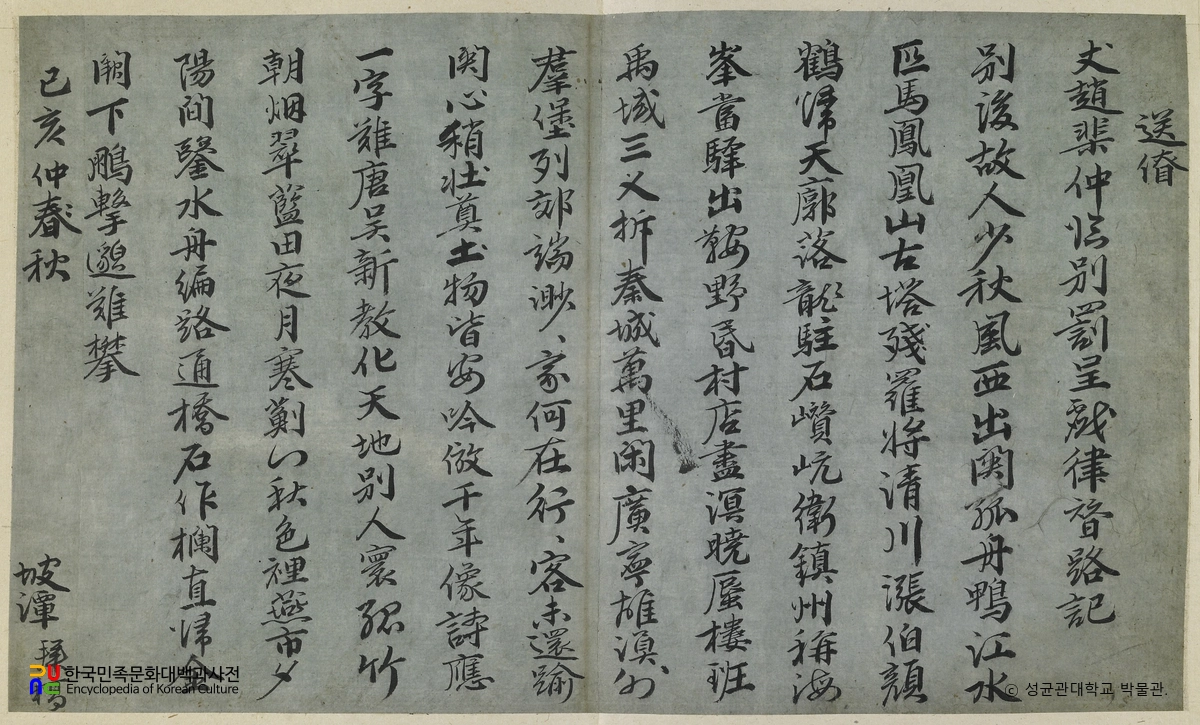 送脩
丈趙棐仲恠別罰呈戱律替路記
別後故人少秋風西出関孤舟鴨江水
匹馬鳳凰山古塔殘羅將清川漲伯顔
鶴帰天廓落龍駐石巑岏衛鎮州稱海
峯當驛出鞍野昏村店盡溟曉蜃樓班
禹域三乂拆秦城萬里閑廣寧雄漠外
羣堡列郊端渺、家何在行、客未還踰
関心稍壮奠土物皆安吟倣千年像詩應
一字難唐吴新教化天地別人寰孤竹
朝烟翠藍田夜月寒薊門秋色裡燕市夕
陽間鑿水舟編路通橋石作欄直帰金
闕下鵬擊邈難攀
己亥仲春秋
坡潭 拜稿
한국민족문화대백과사전
Encyclopedia of Korean Culture
© 성균관대학교 박물관.